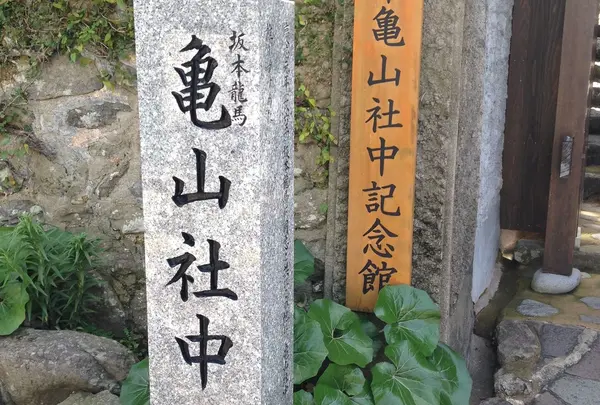 坂本龍馬
亀山社中
亀山社中記念館